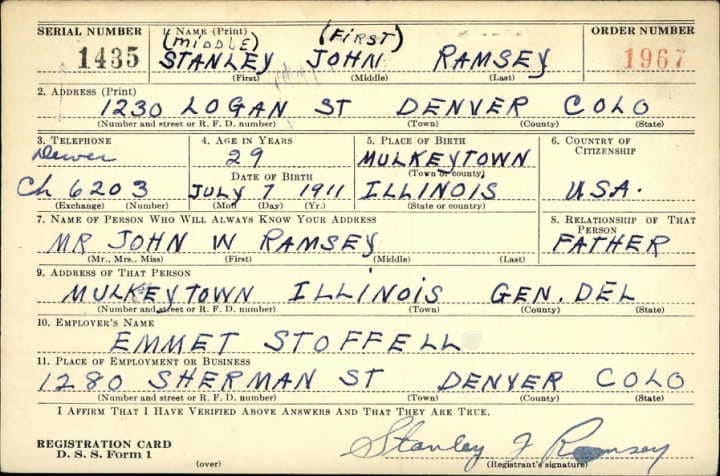 SERIAL NUMBER 1. NAME (Print) ORDER NUMBER
(MIDDLE) (FIRST)
1435 STANLEY JOHN RAMSEY 1967
(First) (Middle) (Last)
2. ADDRESS (Print)
1230 LOGAN ST DENVER COLO
(Number and street or R. F. D. number) (Town) (County) (State)
3. TELEPHONE 4. AGE IN YEARS 5. PLACE OF BIRTH 6. COUNTRY OF
CITIZENSHIP
Denver 29 MULKEYTOWN
DATE OF BIRTH (Town or county)
Ch 6203 JULY 7 1911 ILLINOIS U.S.A.
(Exchange) (Number) (Mon) (Day) (Yr.) (State or country)
7. NAME OF PERSON WHO WILL ALWAYS KNOW YOUR ADDRESS 8. RELATIONSHIP OF THAT
PERSON
MR JOHN W RAMSEY FATHER
(Mr., Mrs., Miss) (First) (Middle) (Last)
9. ADDRESS OF THAT PERSON
MULKEYTOWN ILLINOIS GEN. DEL
(Number and street or R. F. D. number) (Town) (County) (State)
10. EMPLOYER'S NAME
EMMET STOFFELL
11. PLACE OF EMPLOYMENT OR BUSINESS
1280 SHERMAN ST DENVER COLO
(Number and street or R. F. D. number) (Town) (County) (State)
I AFFIRM THAT I HAVE VERIFIED ABOVE ANSWERS AND THAT THEY ARE TRUE.
REGISTRATION CARD
D. S. S. Form 1
Stanley J Ramsey
(over) (Registrant's signature)